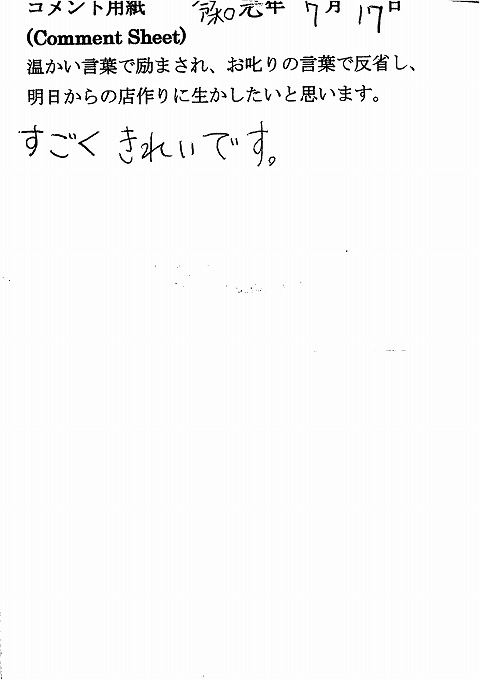 コメント用紙 令和元年 7月 17日
(Comment Sheet)
温かい言葉で励まされ、お叱りの言葉で反省し、
明日からの店作りに生かしたいと思います。
すごく きれいです。